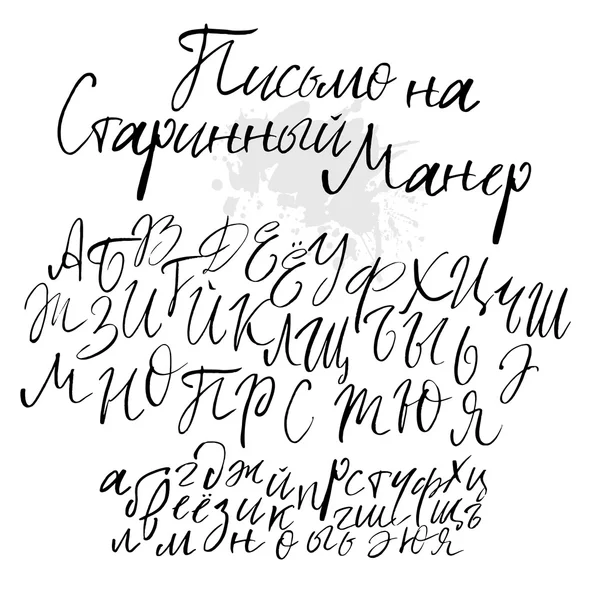 Письмо на
Старинный Манер
А Б В Г Д Е Ё У Ф Х Ц Ч Ш
Ж З И Й К Л Щ Ъ Ы Ь Э
М Н О П Р С Т Ю Я
а б в г д ж й п р с т у ф х ц
е ё з и к ч ш щ ъ
л м н о ы ь э ю я